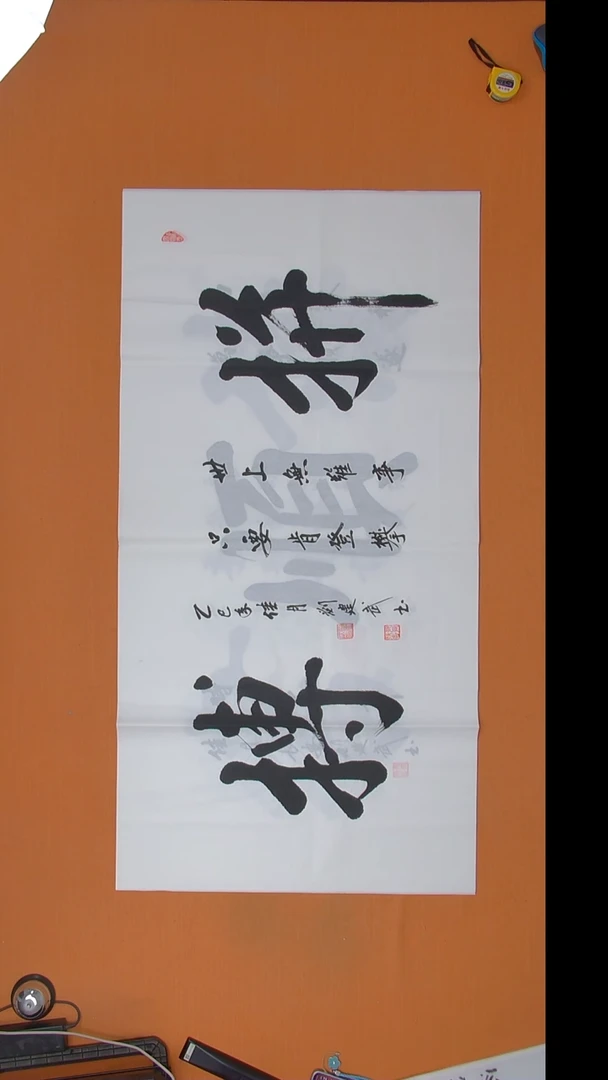 拼搏
世上無難事
只要肯登攀
乙巳年佳月劉建武书